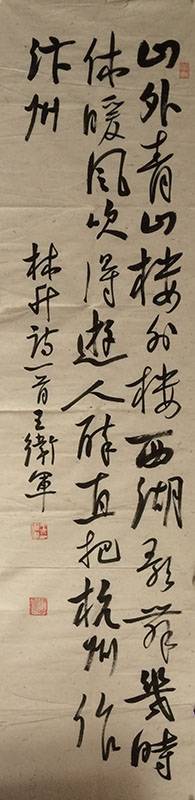 山外青山楼外楼西湖歌舞幾時
休暖风吹得遊人醉直把杭州作
汴州
林升诗一首王衛軍